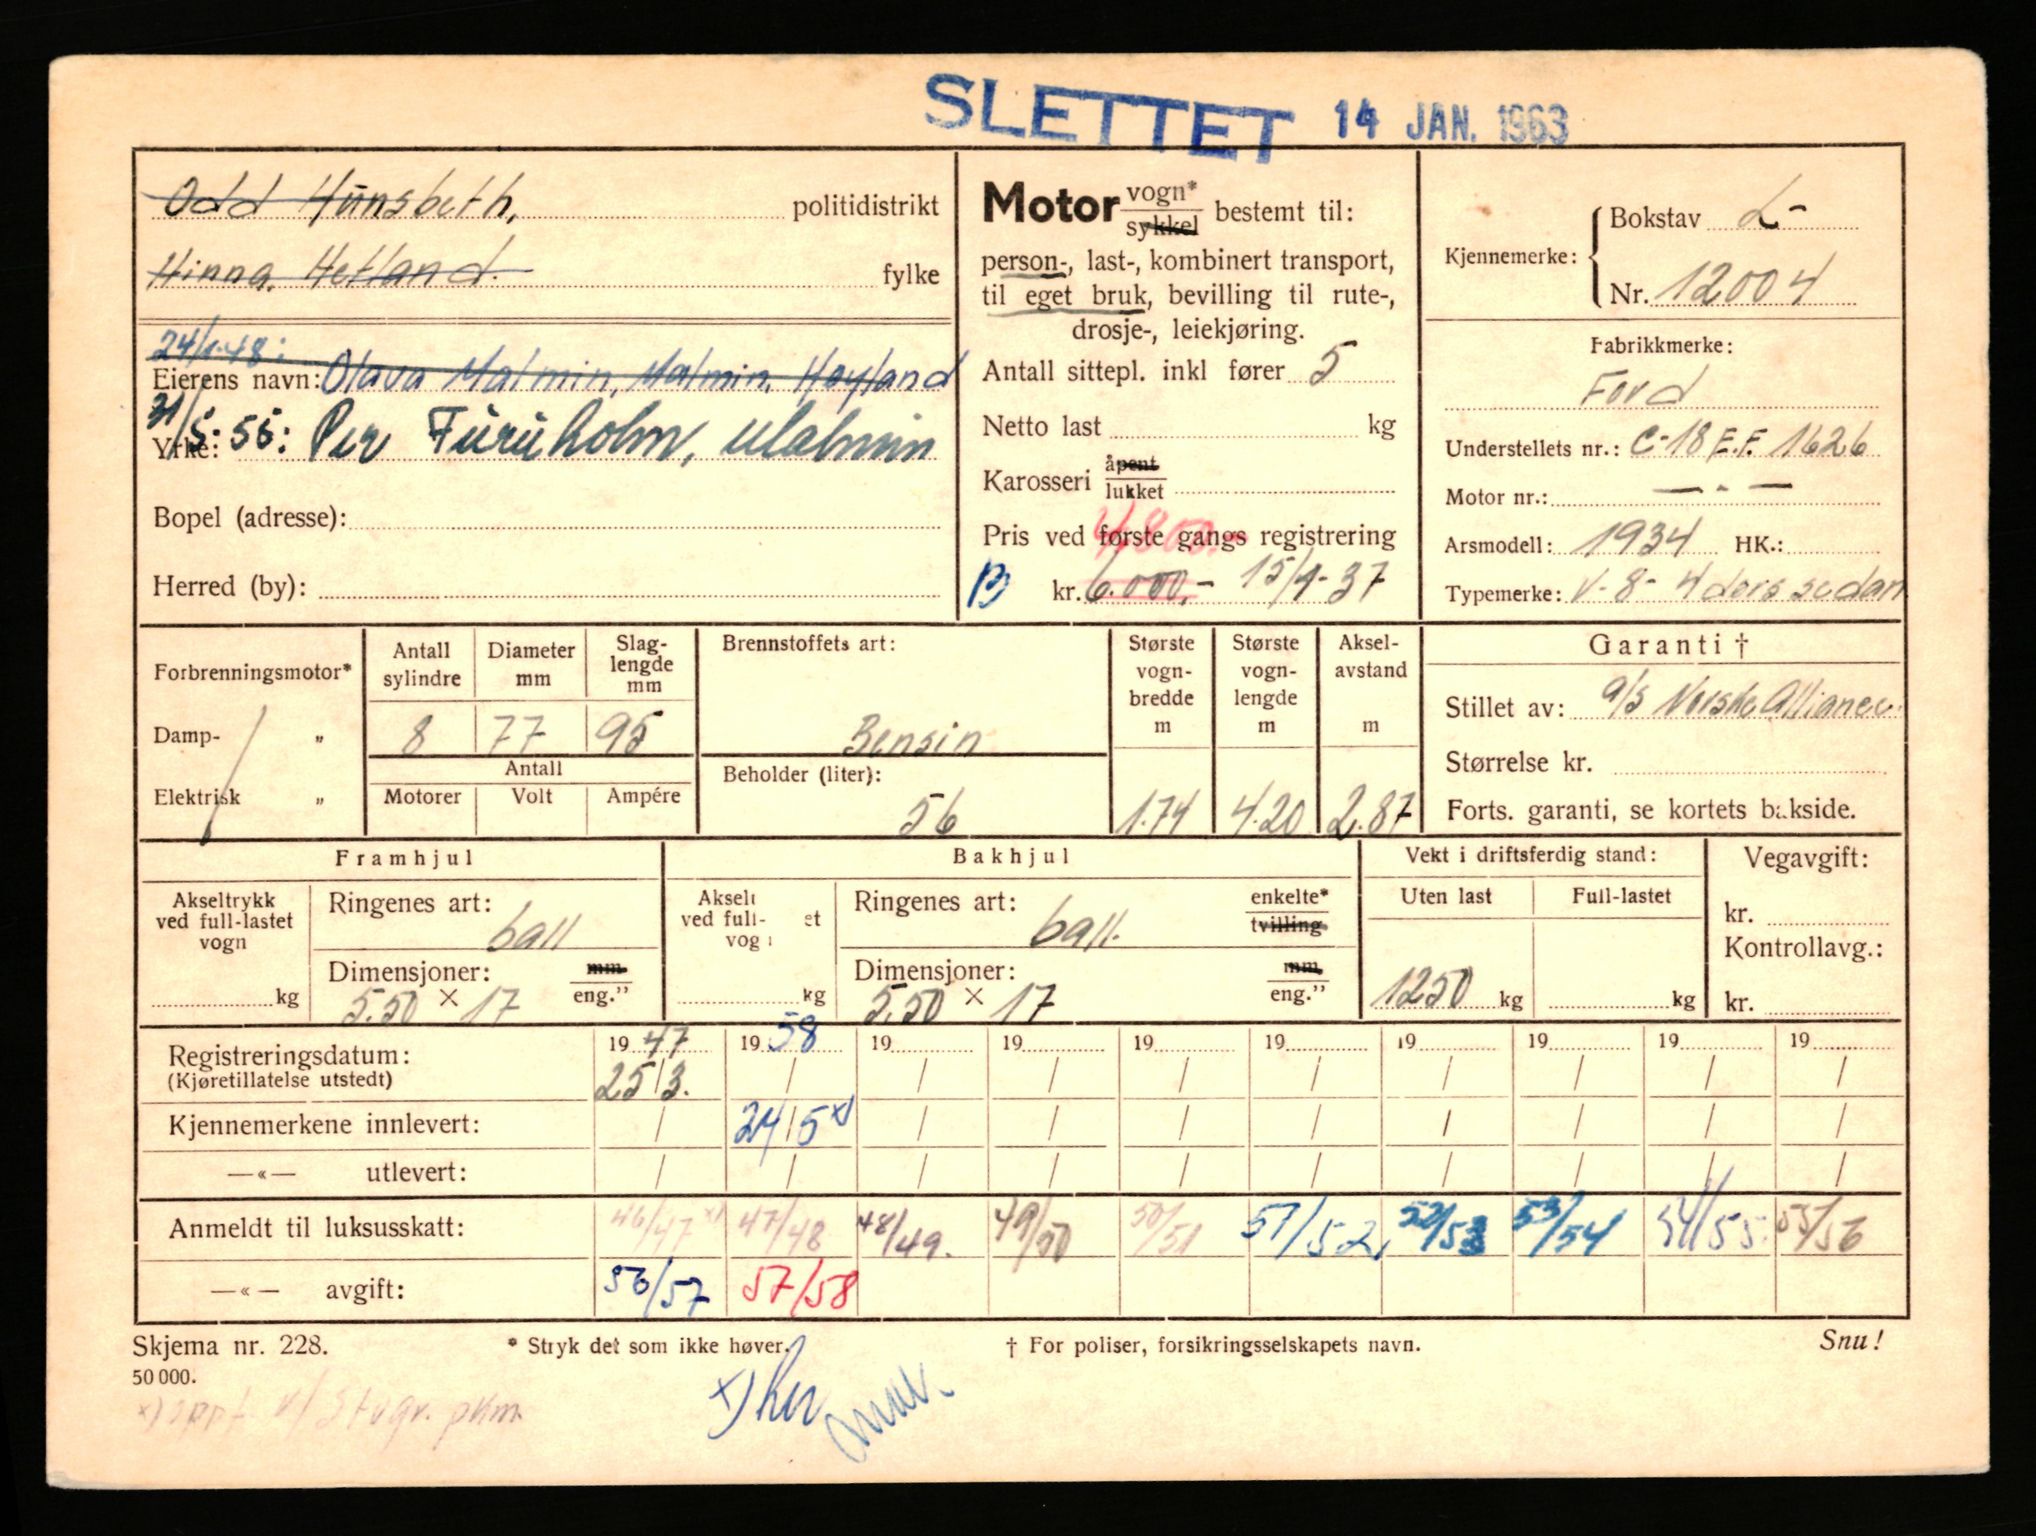 SLETTET 14 JAN. 1963
Odd Hunsbeth, politidistrikt
Hinna, Hetland. fylke
24/1-48:
Eierens navn: Olava Malmin, Malmin, Høyland
31/5-55: Per Furuholm, Malmin
Yrke:
Bopel (adresse):
Herred (by):
Motor vogn*
sykkel bestemt til:
person-, last-, kombinert transport,
til eget bruk, bevilling til rute-,
drosje-, leiekjøring.
Antall sittepl. inkl fører 5
Netto last kg
Karosseri åpent
lukket
4800.-
Pris ved første gangs registrering
B kr. 6.000.- 15/1-37
Kjennemerke: Bokstav L-
Nr. 12004
Fabrikkmerke:
Ford
Understellets nr.: C-18 F.F. 1626
Motor nr.: — . —
Arsmodell: 1934 HK.:
Typemerke: V-8- 4 dørs sedan
Forbrenningsmotor*
Damp- „
Elektrisk „
Antall sylindre
Diameter mm
Slag-
lengde
mm
8 77 95
Antall
Motorer Volt Ampére
Brennstoffets art:
Bensin
Beholder (liter):
56
Største
vogn-
bredde
m
1.74
Største
vogn-
lengde
m
4.20
Aksel-
avstand
m
2.87
Garanti †
Stillet av: a/s Norske Alliance.
Størrelse kr.
Forts. garanti, se kortets bakside.
Framhjul
Akseltrykk
ved full-lastet
vogn
kg
Ringenes art:
ball
Dimensjoner: mm.
5.50 × 17 eng.”
Bakhjul
Akselt
ved full- et
vog
kg
Ringenes art: enkelte*
ball. tvilling
Dimensjoner: mm.
5.50 × 17 eng.”
Vekt i driftsferdig stand:
Uten last Full-lastet
1250 kg kg
Vegavgift:
kr.
Kontrollavg.:
kr.
Registreringsdatum: 19 47 19 58 19 19 19 19 19 19 19 19
(Kjøretillatelse utstedt) 25/3. / / / / / / / / /
Kjennemerkene innlevert: / 24/5 x) / / / / / / / /
—«— utlevert: / / / / / / / / / /
Anmeldt til luksusskatt: 46/47 x) 47/48 48/49. 49/50 50/51 51/52. 52/53 53/54 54/55. 55/56
—«— avgift: 56/57 57/58
Skjema nr. 228. * Stryk det som ikke høver. † For poliser, forsikringsselskapets navn. Snu!
50 000.
x) oppt. v/ Stvgr. pkm.
x) her